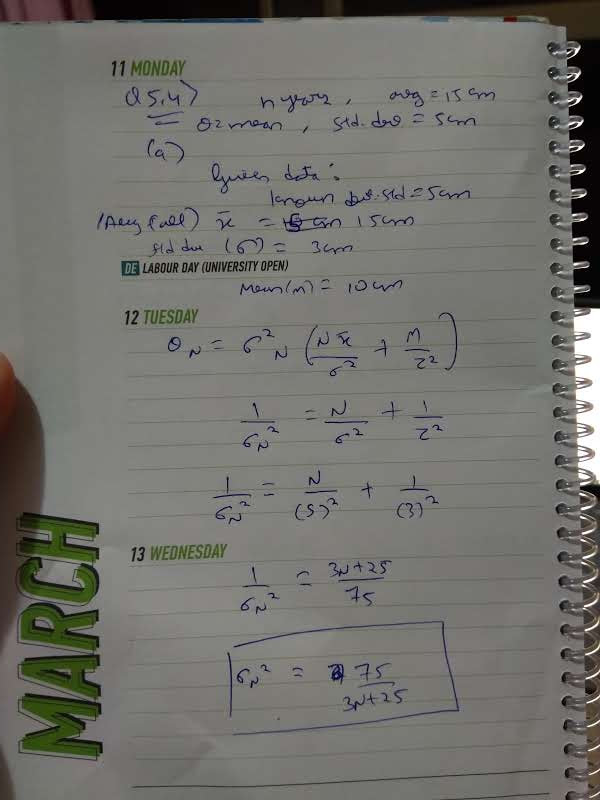 11 MONDAY
Q5.4) n years, avg = 15 cm
θ = mean, std.dev = 5cm
(a)
Given data:
known std = 5cm
x̄ = 15cm
std dev (σ) = 3cm
DE LABOUR DAY (UNIVERSITY OPEN)
Mean(m) = 10cm
12 TUESDAY
θN = σ²N (Nx̄/σ² + M/τ²)
1/σN² = N/σ² + 1/τ²
1/σN² = N/(5)² + 1/(3)²
13 WEDNESDAY
1/σN² = 3N+25/75
σN² = 75/3N+25
MARCH